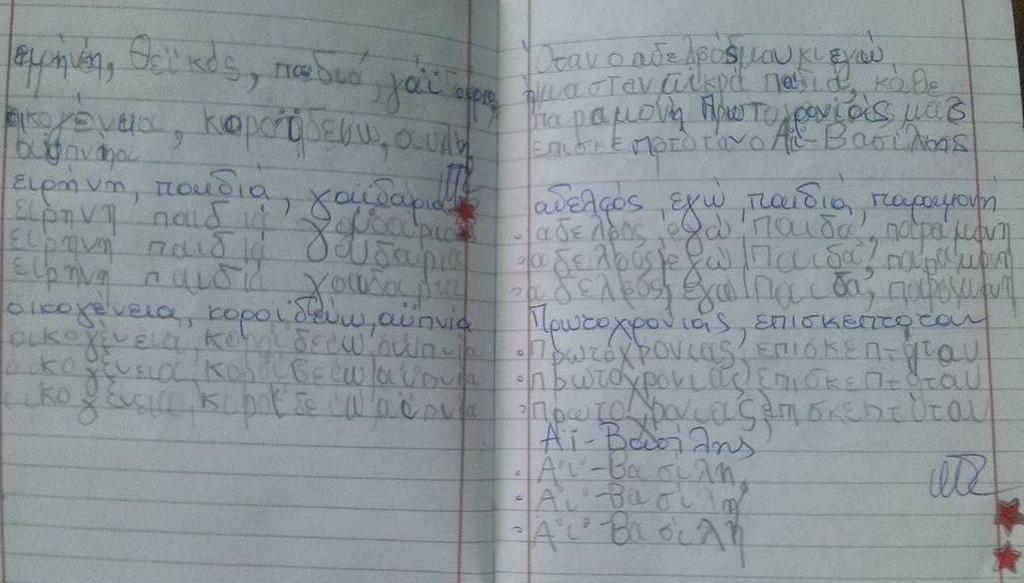 ειρήνη, θεϊκός, παιδιά, γαϊδάρια,
οικογένεια, κοροϊδεύω, αυλή,
αϋπνία
ειρήνη, παιδιά, γαϊδάρια
ειρήνη παιδιά γαϊδαρια
ειρήνη παιδιά γαϊδαρια
ειρήνη παιδιά γαϊδαρια
οικογένεια, κοροϊδεύω, αϋπνία
οικογένεια, κοροϊδεύω, αϋπνία
οικογένεια, κοροϊδεύω αϋπνία
οικογένεια, κοροϊδεύω αϋπνία
Όταν ο αδελφός μου κι εγώ
ήμασταν μικρά παιδιά, κάθε
παραμονή Πρωτοχρονιάς μας
επισκεπτόταν ο Αϊ-Βασίλης
αδελφός, εγώ, παιδιά, παραμονή
αδελφος, εγώ, Παιδα, παραμονη
αδελφος, εγώ, Παιδά, παραμονη
αδελφός, εγώ, Παιδα, παραμονη
Πρωτοχρονιάς, επισκεπτόταν
Πρωτοχρονιας, επισκεπτόταν
Πρωτοχρονιας, επισκεπτόταν
Πρωτοχρονιας, επισκεπτόταν
Αϊ-Βασίλης
Αϊ-Βασιλη
Αϊ-Βασιλη
Αϊ-Βασίλη